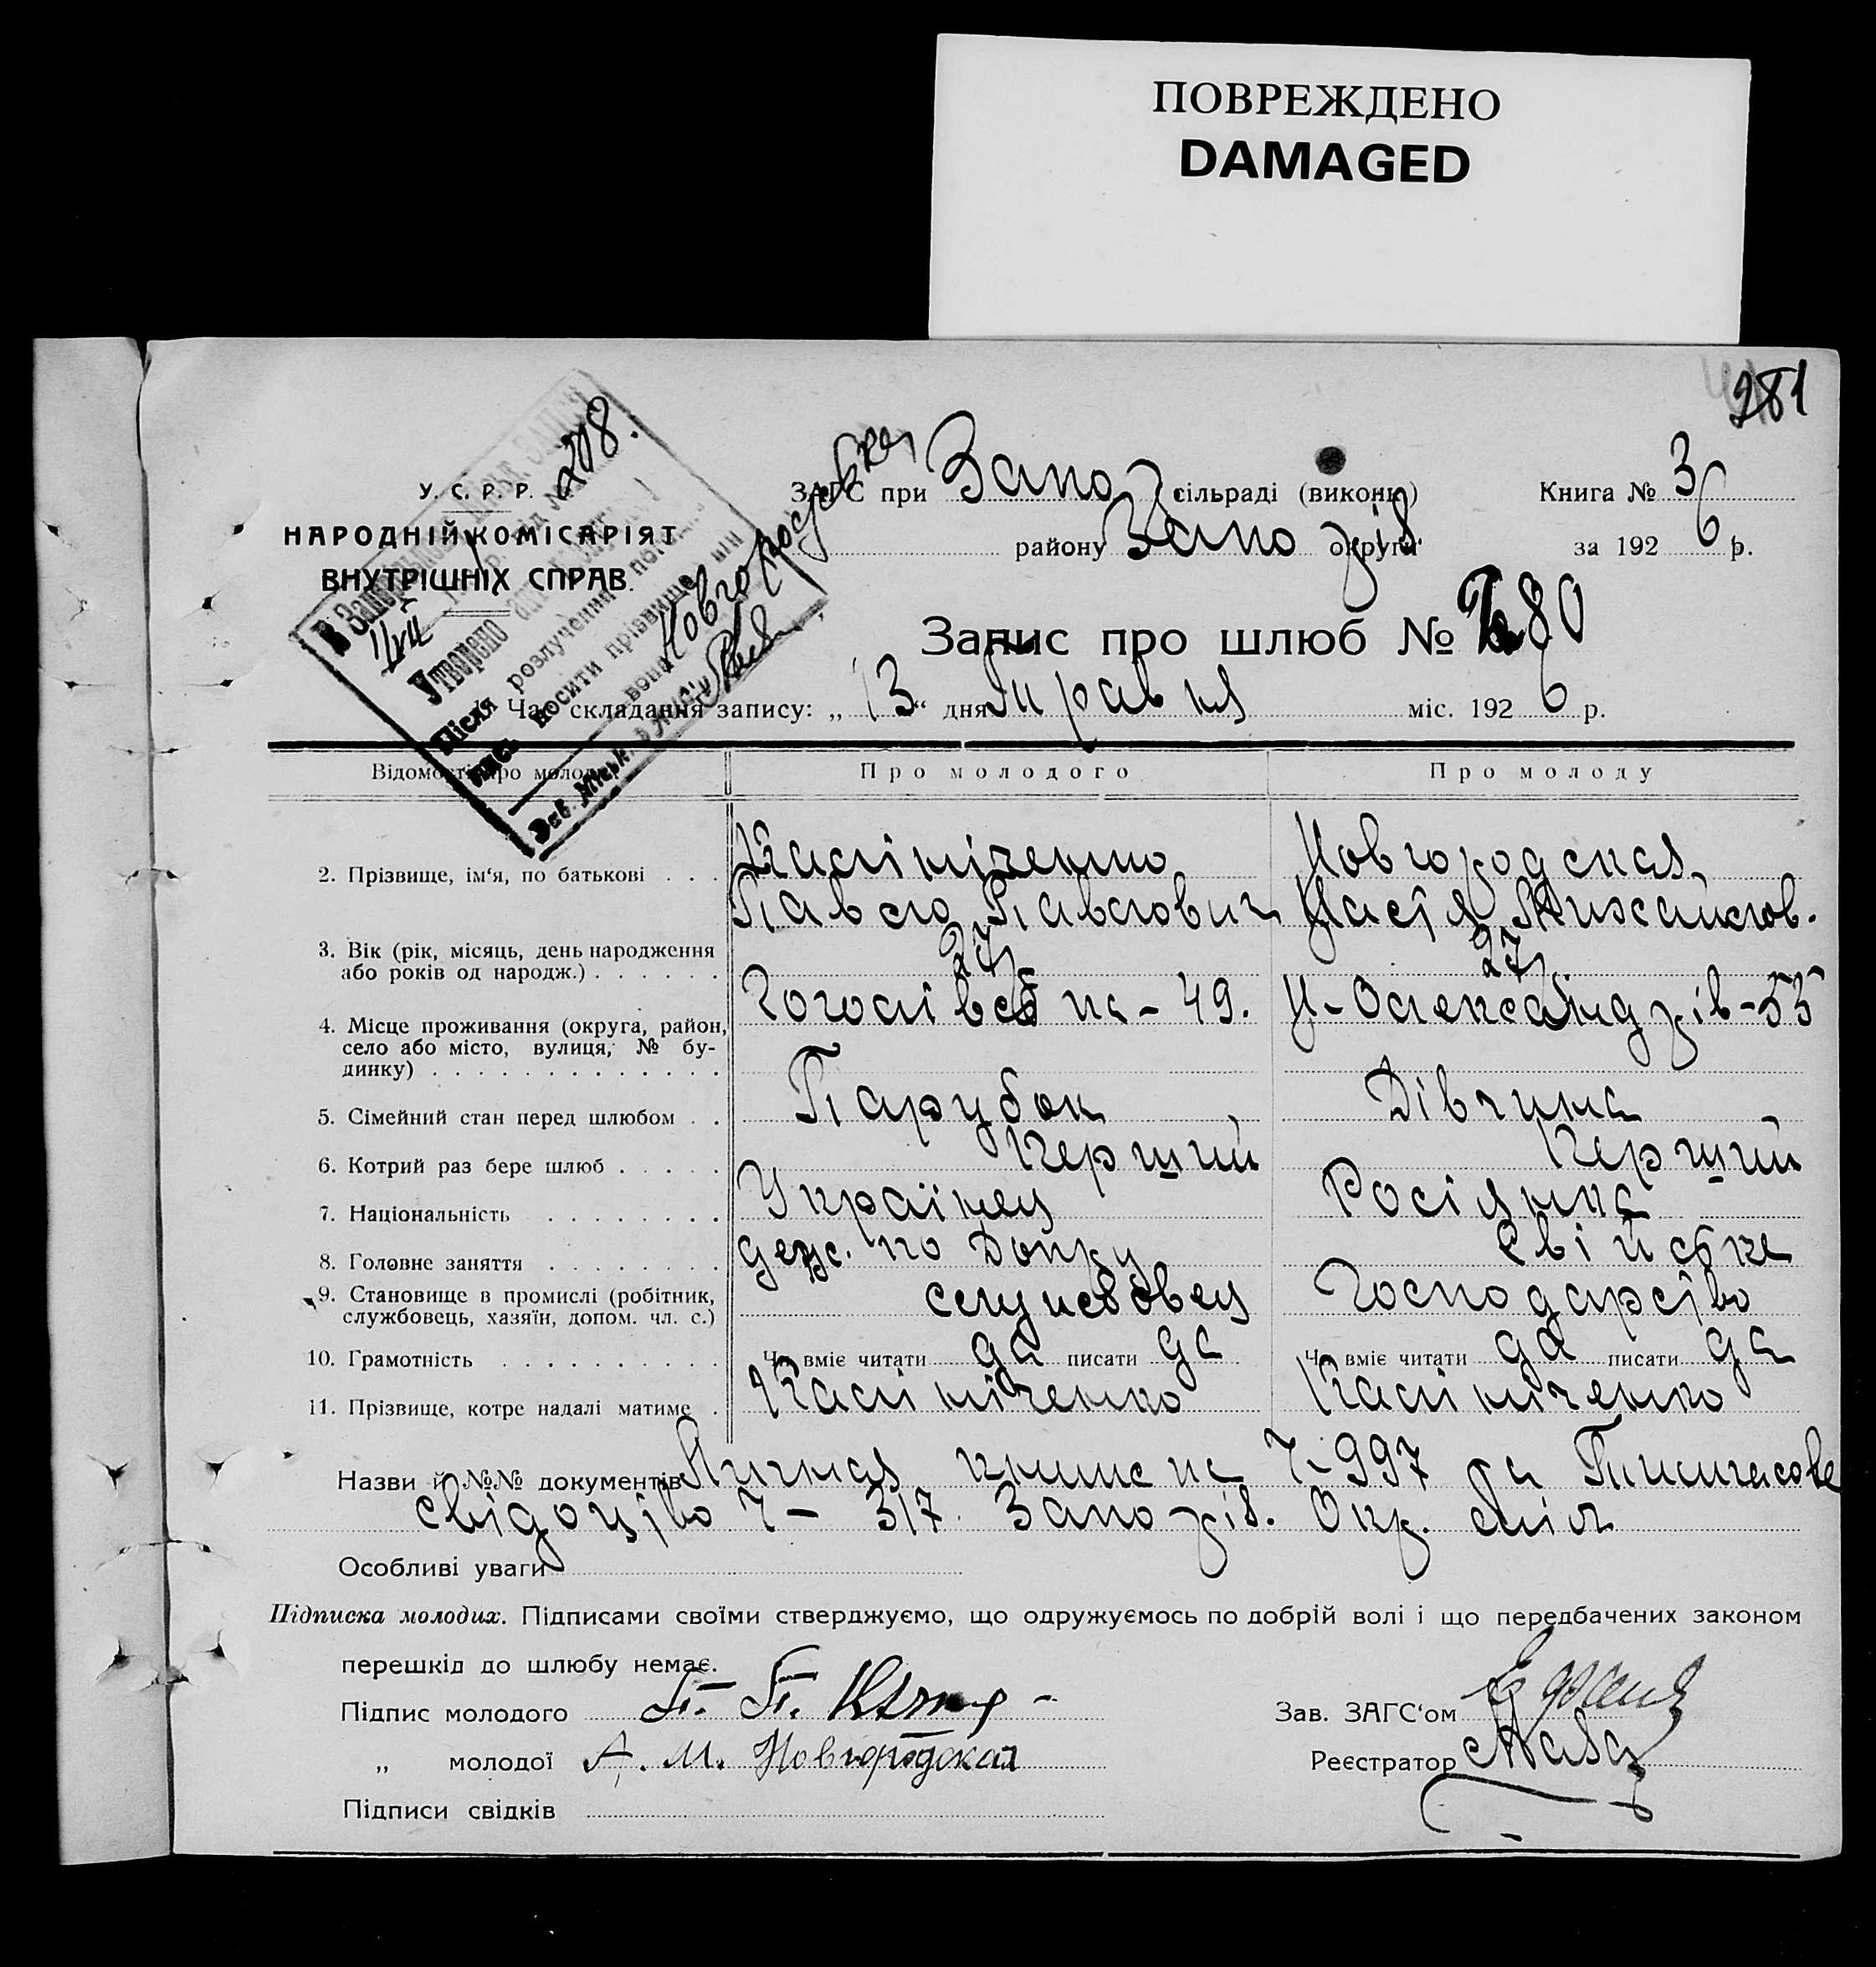 ПОВРЕЖДЕНО
DAMAGED
281
У. С. Р. Р.
НАРОДНІЙ КОМІСАРІЯТ
ВНУТРІШНІХ СПРАВ.
218.
Утворено
Після розлучення
носити прізвище
вона Новгородська
ЗАГС при Запо сільраді (виконк)
Книга № 3
району Запоріз округи
за 1926 р.
Запис про шлюб № 280
1. Час складання запису: „13“ дня Травня міс. 1926 р.
Відомості про молодих
Про молодого
Про молоду
2. Прізвище, ім‘я, по батькові . . .
Калініченко
Павло Павлович
Новгородская
Настя Михайлов.
3. Вік (рік, місяць, день народження
або років од народж.) . . . . . .
27
27
4. Місце проживання (округа, район,
село або місто, вулиця, № бу-
динку) . . . . . . . . . . . . .
Гоголівська - 49.
Н-Олександрів-55
5. Сімейний стан перед шлюбом . .
Парубок
Дівчина
6. Котрий раз бере шлюб . . . . .
Перший
Перший
7. Національність . . . . . . . .
Українец
Росіянка
8. Головне заняття . . . . . . . .
деж. по Допру
Свійське
9. Становище в промислі (робітник,
службовець, хазяїн, допом. чл. с.)
служовбец
Господарство
10. Грамотність . . . . . . . . . .
Чи вміє читати да писати да
Чи вміє читати да писати да
11. Прізвище, котре надалі матиме .
Калініченко
Калініченко
Назви й №№ документів Личная книжка Ч-997 та
свідоцтво Ч - 317. Запоріз. Окр.
Особливі уваги
Підписка молодих. Підписами своїми стверджуємо, що одружуємось по добрій волі і що передбачених законом
перешкід до шлюбу немає.
Підпис молодого П. П.
Зав. ЗАГС‘ом
„ молодої А. М. Новгородская
Реєстратор
Підписи свідків